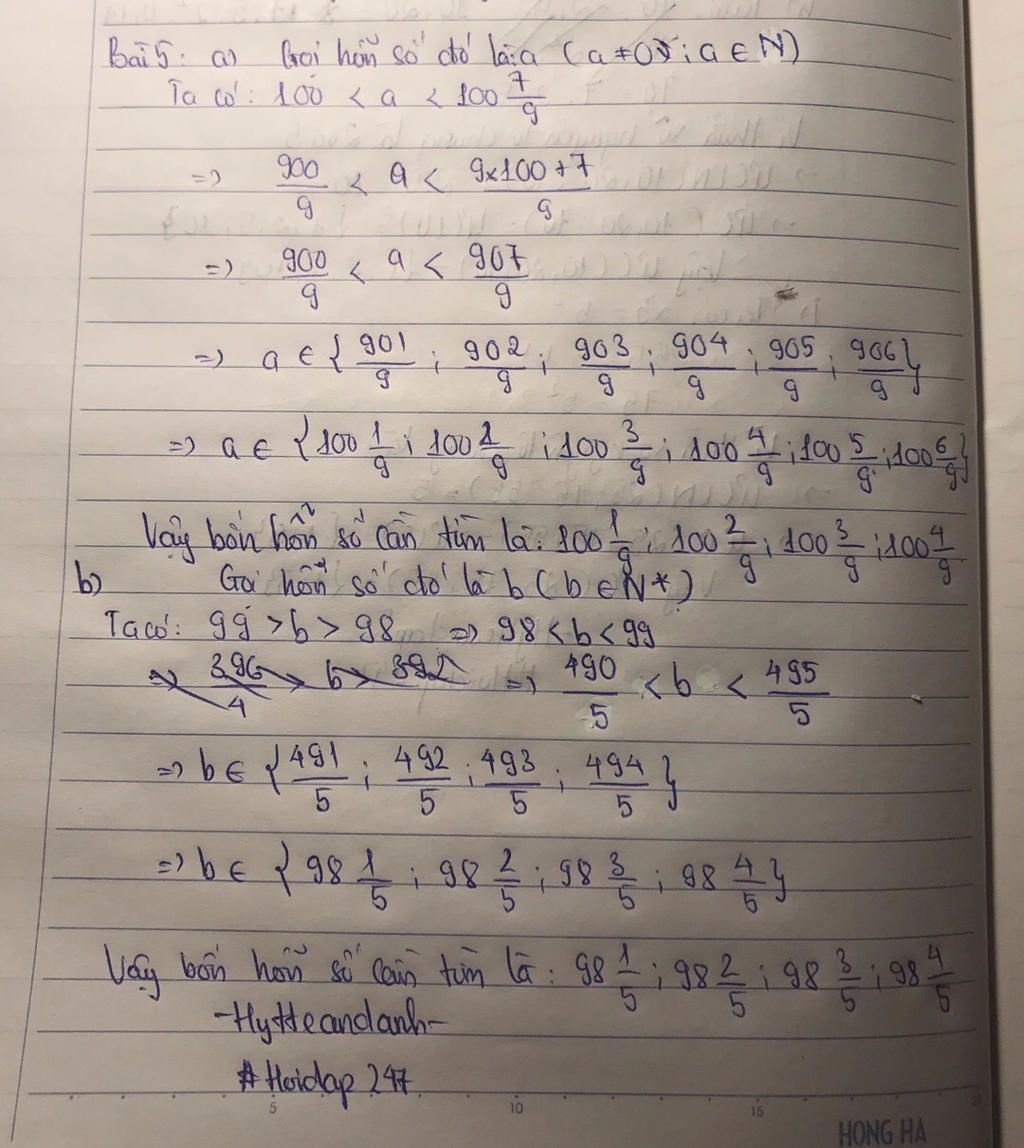 Bài 5: a) Gọi hỗn số đó là a (a ≠ 0; a ∈ N)
Ta có: 100 < a < 100 7/9
=> 900/9 < a < 9x100+7/9
=> 900/9 < a < 907/9
=> a ∈ { 901/9 ; 902/9 ; 903/9 ; 904/9 ; 905/9 ; 906/9 }
=> a ∈ { 100 1/9 ; 100 2/9 ; 100 3/9 ; 100 4/9 ; 100 5/9 ; 100 6/9 }
Vậy bốn hỗn số cần tìm là: 100 1/9 ; 100 2/9 ; 100 3/9 ; 100 4/9
b) Gọi hỗn số đó là b ( b ∈ N* )
Ta có: 99 > b > 98 => 98 < b < 99
=> 396/4 > b > 392 => 490/5 < b < 495/5
=> b ∈ { 491/5 ; 492/5 ; 493/5 ; 494/5 }
=> b ∈ { 98 1/5 ; 98 2/5 ; 98 3/5 ; 98 4/5 }
Vậy bốn hỗn số cần tìm là: 98 1/5 ; 98 2/5 ; 98 3/5 ; 98 4/5
-Hytteandanh-
# Hoidap 247
5 10 15 20
HONG HA